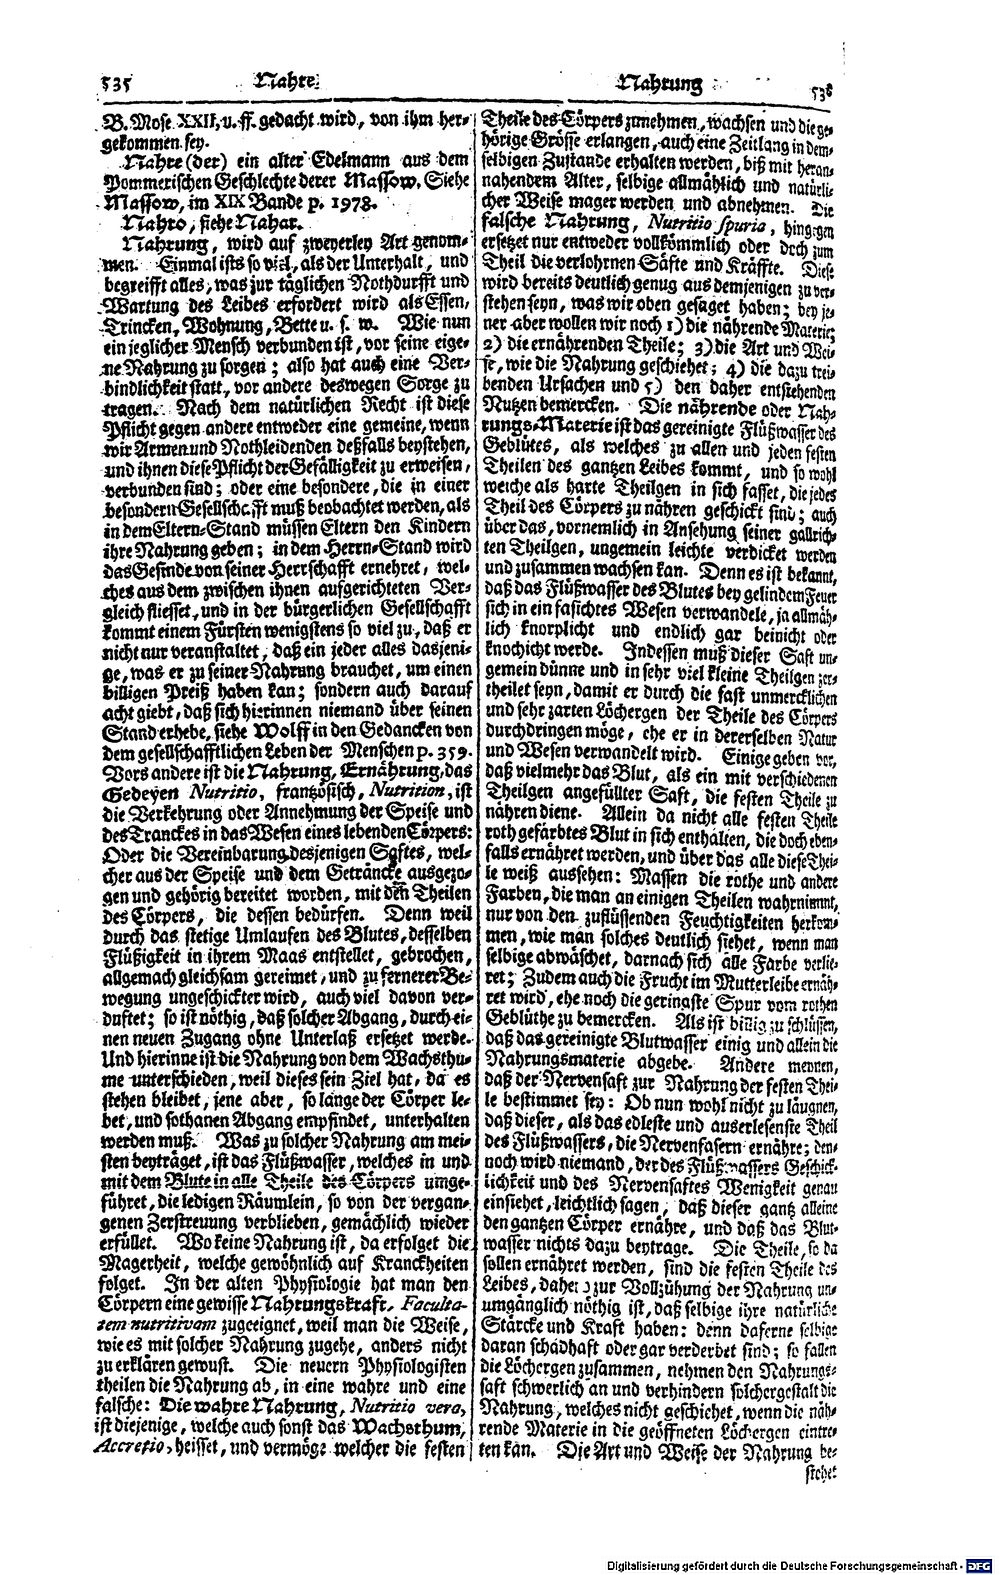 535 Nahre
B. Mose XXII, u. ff. gedacht wird, von ihm her-
gekommen sey.
Nahre (der) ein alter Edelmann aus dem
Pommerischen Geschlechte derer Massow. Siehe
Massow, im XIX Bande p. 1978.
Nahro, siehe Nahar.
Nahrung, wird auf zweyerley Art genom-
men. Einmal ists so viel, als der Unterhalt, und
begreifft alles, was zur täglichen Nothdurfft und
Wartung des Leibes erfordert wird als Essen,
Trincken, Wohnung, Bette u. s. w. Wie nun
ein jeglicher Mensch verbunden ist, vor seine eige-
ne Nahrung zu sorgen; also hat auch eine Ver-
bindlichkeit statt, vor andere deswegen Sorge zu
tragen. Nach dem natürlichen Recht ist diese
Pflicht gegen andere entweder eine gemeine, wenn
wir Armen und Nothleidenden deßfalls beystehen,
und ihnen diese Pflicht der Gefälligkeit zu erweisen,
verbunden sind; oder eine besondere, die in einer
besondern Gesellschafft muß beobachtet werden, als
in dem Eltern-Stand müssen Eltern den Kindern
ihre Nahrung geben; in dem Herrn-Stand wird
das Gesinde von seiner Herrschafft ernehret, wel-
ches aus dem zwischen ihnen aufgerichteten Ver-
gleich fliesset, und in der bürgerlichen Gesellschafft
kommt einem Fürsten wenigstens so viel zu, daß er
nicht nur veranstaltet, daß ein jeder alles dasjeni-
ge, was er zu seiner Nahrung brauchet, um einen
billigen Preiß haben kan; sondern auch darauf
acht giebt, daß sich hierinnen niemand über seinen
Stand erhebe, siehe Wolff in den Gedancken von
dem gesellschafftlichen Leben der Menschen p. 359.
Vors andere ist die Nahrung, Ernährung, das
Gedeyen Nutritio, frantzösisch, Nutrition, ist
die Verkehrung oder Annehmung der Speise und
des Tranckes in das Wesen eines lebenden Cörpers:
Oder die Vereinbarung desjenigen Saftes, wel-
cher aus der Speise und dem Geträncke ausgezo-
gen und gehörig bereitet worden, mit den Theilen
des Cörpers, die dessen bedürfen. Denn weil
durch das stetige Umlaufen des Blutes, desselben
Flüßigkeit in ihrem Maas entstellet, gebrochen,
allgemach gleichsam gereimet, und zu fernerer Be-
wegung ungeschickter wird, auch viel davon ver-
duftet; so ist nöthig, daß solcher Abgang, durch ei-
nen neuen Zugang ohne Unterlaß ersetzet werde.
Und hierinne ist die Nahrung von dem Wachsthu-
me unterschieden, weil dieses sein Ziel hat, da es
stehen bleibet, jene aber, so lange der Cörper le-
bet, und sothanen Abgang empfindet, unterhalten
werden muß. Was zu solcher Nahrung am mei-
sten beyträget, ist das Flüßwasser, welches in und
mit dem Blute in alle Theile des Cörpers umge-
führet, die ledigen Räumlein, so von der vergan-
genen Zerstreuung verblieben, gemächlich wieder
erfüllet. Wo keine Nahrung ist, da erfolget die
Magerheit, welche gewöhnlich auf Kranckheiten
folget. In der alten Physiologie hat man den
Cörpern eine gewisse Nahrungskraft, Faculta-
tem nutritivam zugeeignet, weil man die Weise,
wie es mit solcher Nahrung zugehe, anders nicht
zu erklären gewust. Die neuern Physiologisten
theilen die Nahrung ab, in eine wahre und eine
falsche: Die wahre Nahrung, Nutritio vera,
ist diejenige, welche auch sonst das Wachsthum,
Accretio, heisset, und vermöge welcher die festen
Nahrung 536
Theile des Cörpers zunehmen, wachsen und die ge-
hörige Grösse erlangen, auch eine Zeitlang in dem-
selbigen Zustande erhalten werden, biß mit heran-
nahendem Alter, selbige allmählich und natürli-
cher Weise mager werden und abnehmen. Die
falsche Nahrung, Nutritio spuria, hingegen
ersetzet nur entweder vollkömmlich oder doch zum
Theil die verlohrnen Säfte und Kräffte. Diese
wird bereits deutlich genug aus demjenigen zu ver-
stehen seyn, was wir oben gesaget haben; bey je-
ner aber wollen wir noch 1) die nährende Materie;
2) die ernährenden Theile; 3) die Art und Wei-
se, wie die Nahrung geschiehet; 4) die dazu trei-
benden Ursachen und 5) den daher entstehenden
Nutzen bemercken. Die nährende oder Nah-
rungs-Materie ist das gereinigte Flüßwasser des
Geblütes, als welches zu allen und jeden festen
Theilen des gantzen Leibes kommt, und so wohl
weiche als harte Theilgen in sich fasset, die jedes
Theil des Cörpers zu nähren geschickt sind; auch
über das, vornemlich in Ansehung seiner gallrich-
ten Theilgen, ungemein leichte verdicket werden
und zusammen wachsen kan. Denn es ist bekannt,
daß das Flüßwasser des Blutes bey gelindem Feuer
sich in ein fasichtes Wesen verwandele, ja allmäh-
lich knorplicht und endlich gar beinicht oder
knochicht werde. Indessen muß dieser Saft un-
gemein dünne und in sehr viel kleine Theilgen zer-
theilet seyn, damit er durch die fast unmercklichen
und sehr zarten Löchergen der Theile des Cörpers
durchdringen möge, ehe er in dererselben Natur
und Wesen verwandelt wird. Einige geben vor,
daß vielmehr das Blut, als ein mit verschiedenen
Theilgen angefüllter Saft, die festen Theile zu
nähren diene. Allein da nicht alle festen Theile
roth gefärbtes Blut in sich enthalten, die doch eben-
falls ernähret werden, und über das alle diese Thei-
le weiß aussehen: Massen die rothe und andere
Farben, die man an einigen Theilen wahrnimmt,
nur von den zuflüssenden Feuchtigkeiten herkom-
men, wie man solches deutlich siehet, wenn man
selbige abwäschet, darnach sich alle Farbe verlie-
ret; Zudem auch die Frucht im Mutterleibe ernäh-
ret wird, ehe noch die geringste Spur vom rothen
Geblüthe zu bemercken. Als ist billig zu schlüssen,
daß das gereinigte Blutwasser einig und allein die
Nahrungsmaterie abgebe. Andere meynen,
daß der Nervensaft zur Nahrung der festen Thei-
le bestimmet sey: Ob nun wohl nicht zu läugnen,
daß dieser, als das edleste und auserlesenste Theil
des Flüßwassers, die Nervenfasern ernähre; den-
noch wird niemand, der des Flüßwassers Geschick-
lichkeit und des Nervensaftes Wenigkeit genau
einsiehet, leichtlich sagen, daß dieser gantz alleine
den gantzen Cörper ernähre, und daß das Blut-
wasser nichts dazu beytrage. Die Theile, so da
sollen ernähret werden, sind die festen Theile des
Leibes, daher zur Vollzühung der Nahrung un-
umgänglich nöthig ist, daß selbige ihre natürliche
Stärcke und Kraft haben: denn daferne selbige
daran schadhaft oder gar verderbet sind; so fallen
die Löchergen zusammen, nehmen den Nahrungs-
saft schwerlich an und verhindern solchergestalt die
Nahrung, welches nicht geschiehet, wenn die näh-
rende Materie in die geöffneten Löchergen eintre-
ten kan. Die Art und Weise der Nahrung be-
stehet
Digitalisierung gefördert durch die Deutsche Forschungsgemeinschaft - DFG